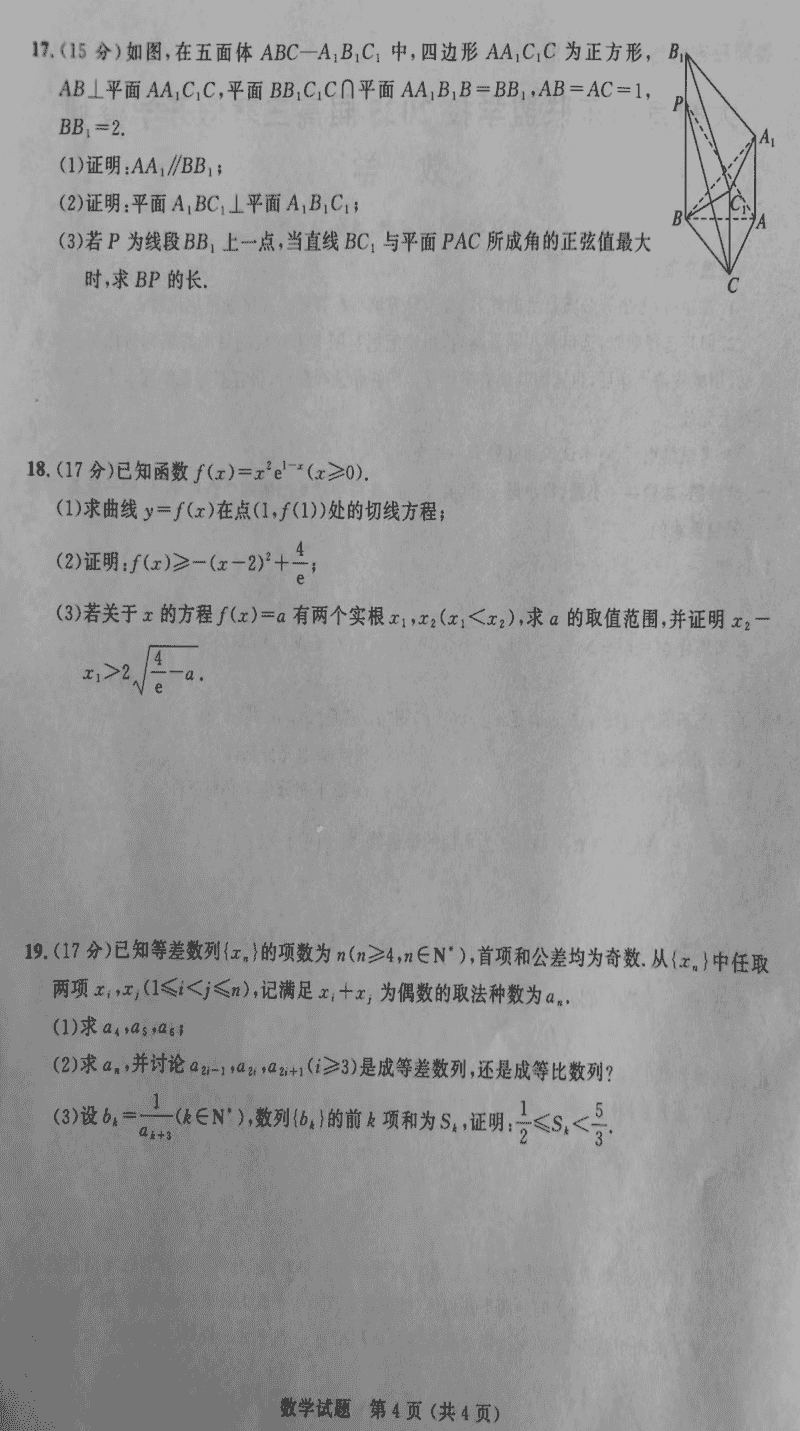 17.(15分)如图,在五面体 ABC—A₁B₁C₁ 中,四边形 AA₁C₁C 为正方形,
AB⊥平面 AA₁C₁C,平面 BB₁C₁C∩平面 AA₁B₁B=BB₁,AB=AC=1,
BB₁=2.
(1)证明:AA₁∥BB₁;
(2)证明:平面 A₁BC₁⊥平面 A₁B₁C₁;
(3)若 P 为线段BB₁ 上一点,当直线 BC₁ 与平面 PAC 所成角的正弦值最大
时,求 BP 的长.
B₁
P
A₁
C₁
B
A
C
18.(17分)已知函数 f(x)=x²e¹⁻ˣ(x≥0).
(1)求曲线 y=f(x)在点(1,f(1))处的切线方程;
(2)证明:f(x)≥-(x-2)²+4/e;
(3)若关于 x 的方程 f(x)=a 有两个实根 x₁,x₂(x₁<x₂),求 a 的取值范围,并证明 x₂-
x₁>2√(4/e-a).
19.(17分)已知等差数列{xₙ}的项数为 n(n≥4,n∈N*),首项和公差均为奇数.从{xₙ}中任取
两项 xᵢ,xⱼ(1≤i<j≤n),记满足 xᵢ+xⱼ 为偶数的取法种数为aₙ.
(1)求 a₄,a₅,a₆;
(2)求 aₙ,并讨论 a₂ᵢ₋₁,a₂ᵢ,a₂ᵢ₊₁(i≥3)是成等差数列,还是成等比数列?
(3)设 bₖ=1/aₖ₊₃(k∈N*),数列{bₖ}的前 k 项和为 Sₖ,证明:1/2≤Sₖ<5/3.
数学试题 第4页(共4页)